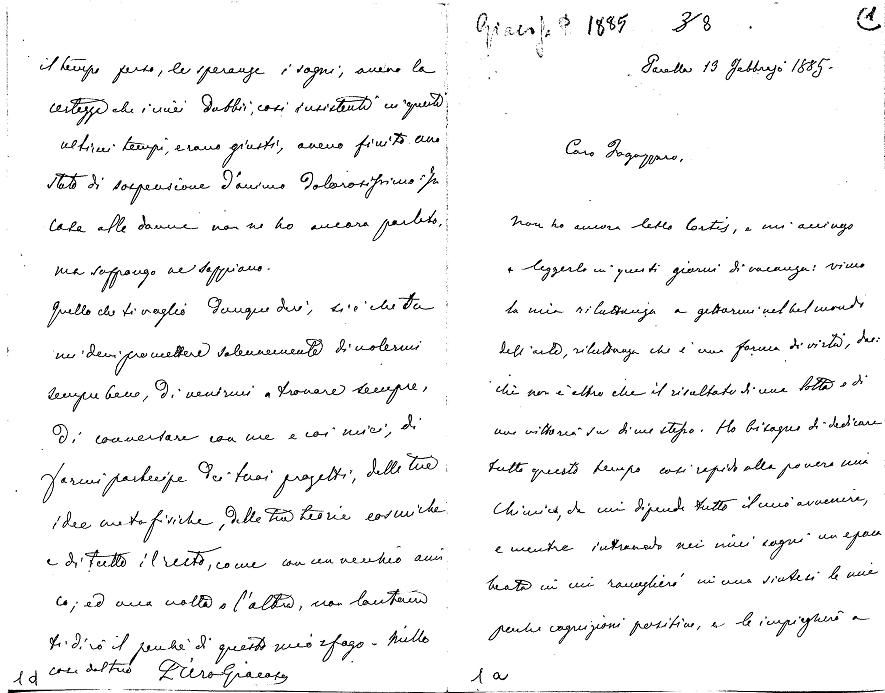 Giacosa P. 1885 3/8
1
Parella 13 Febbrajo 1885.
Caro Fogazzaro,
Non ho ancora letto Cortis, e mi accingo
a leggerlo in questi giorni di vacanza: vinco
la mia riluttanza a gettarmi nel bel mondo
dell'arte, riluttanza che è una forma di virtù, dac:
chè non è altro che il risultato di una lotta e di
una vittoria su di me stesso. Ho bisogno di dedicare
tutto questo tempo così rapido alla povera mia
Chimica, da cui dipende tutto il mio avvenire,
e mentre intravedo nei miei sogni un'epoca
beata in cui raccoglierò in una sintesi le mie
poche cognizioni positive, e le impiegherò a
1a
il tempo perso, le speranze i sogni, aveva la
certezza che i miei dubbii, così insistenti in questi
ultimi tempi, erano giusti, aveva finito uno
stato di sospensione d'animo dolorosissimo. In
casa alle donne non ne ho ancora parlato,
ma suppongo ne sappiano.
Quello che ti voglio dunque dire, si è che tu
mi devi promettere solennemente di volermi
sempre bene, di venirmi a trovare sempre,
di conversare con me e coi miei, di
farmi partecipe dei tuoi progetti, delle tue
idee metafisiche, delle tue teorie cosmiche
e di tutto il resto, come con un vecchio ami
co; ed una volta o l'altra, non lontana
ti dirò il perchè di questo mio sfogo - Mille
cose dal tuo Piero Giacosa
1d